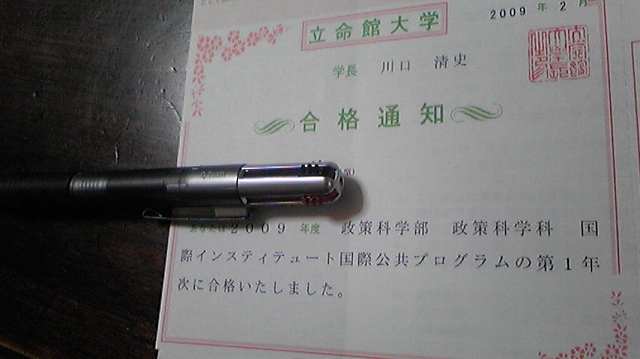 立命館大学
2009 年 2 月
学長 川口 清史
合格通知
あなたは2009 年度 政策科学部 政策科学科 国
際インスティテュート国際公共プログラムの第1年
次に合格いたしました。